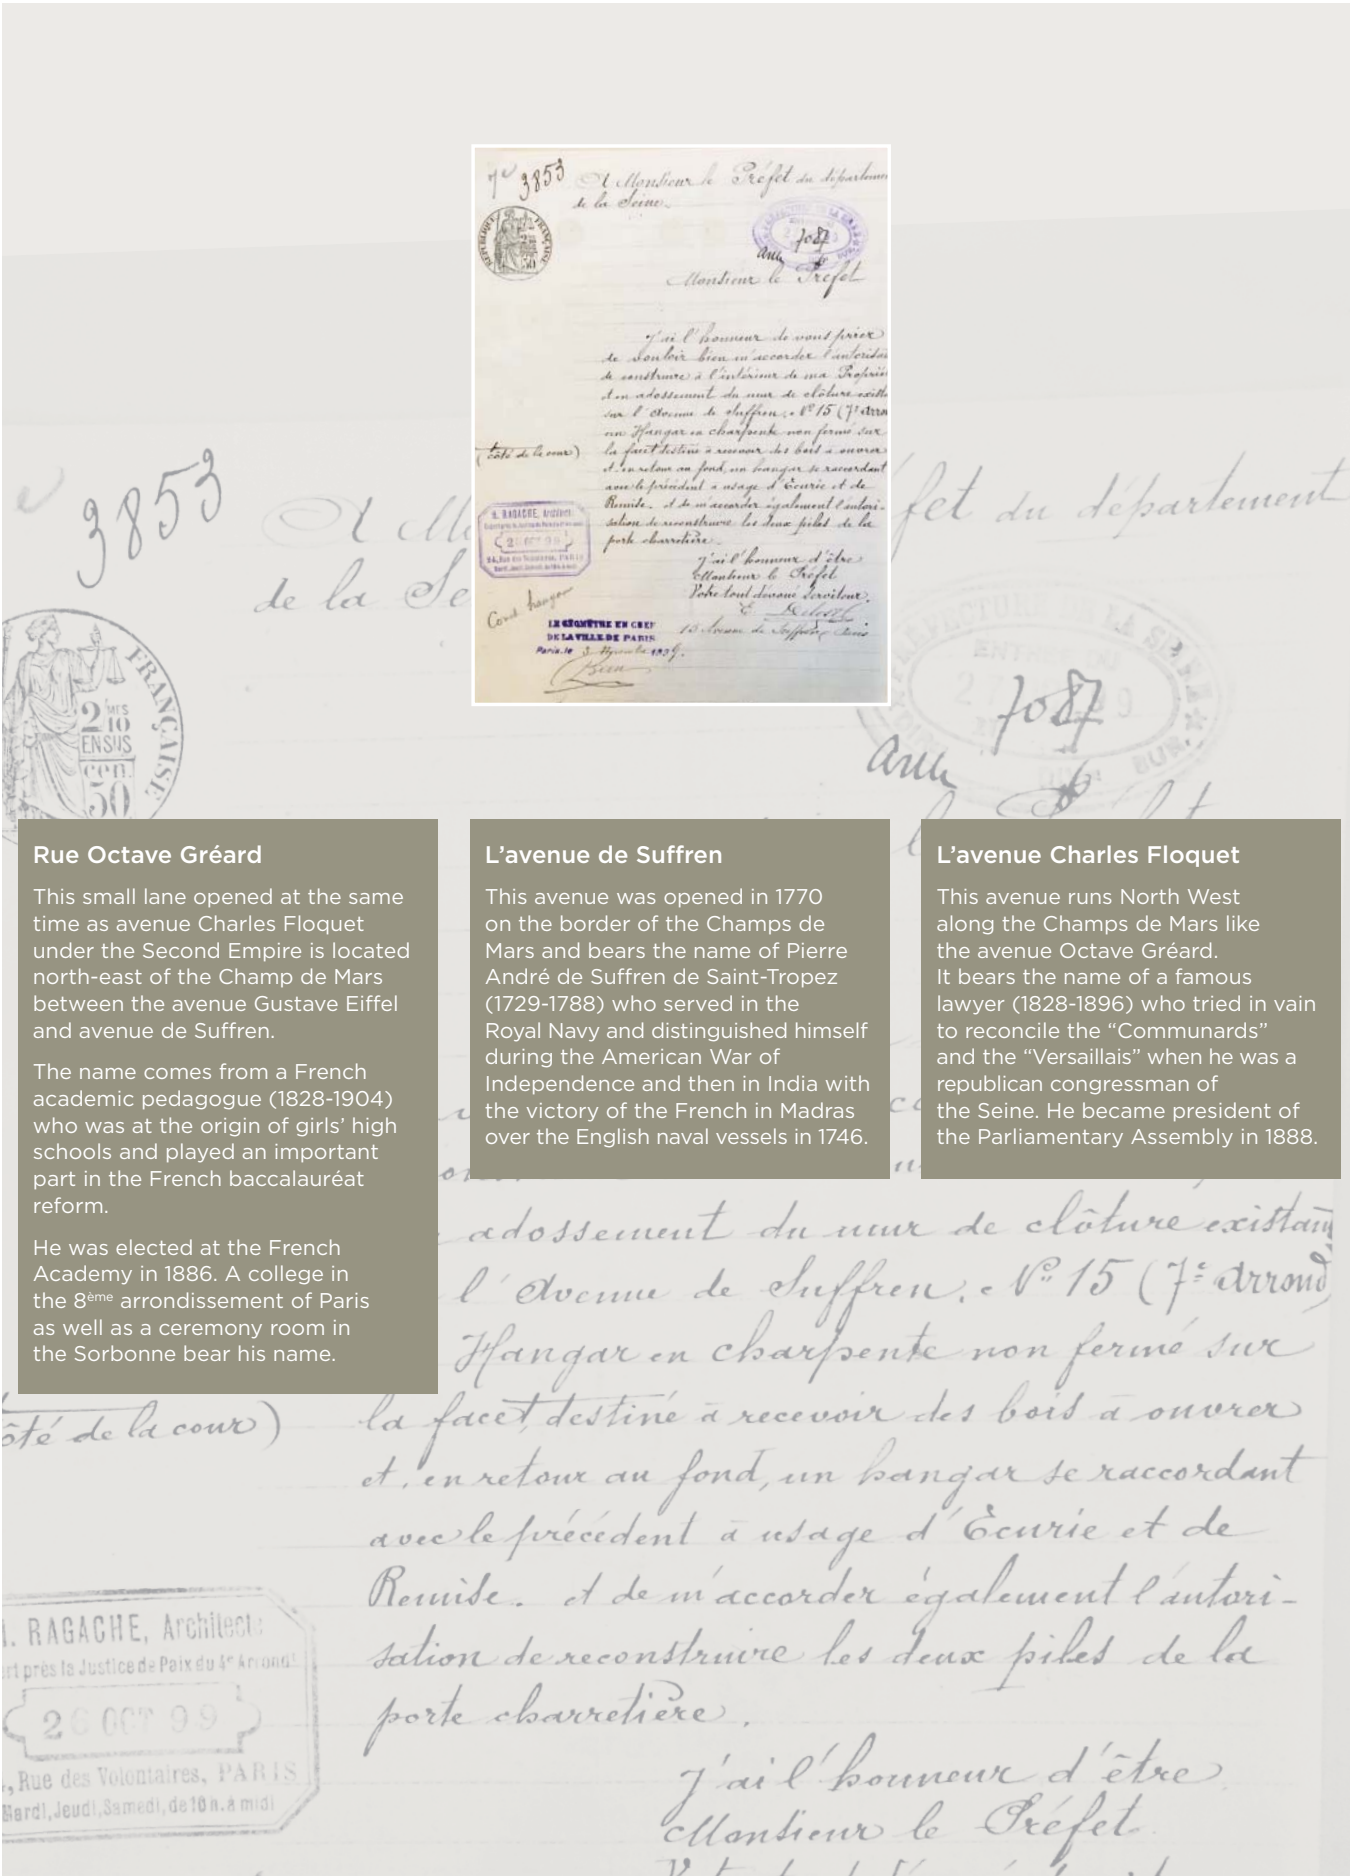 7e 3853
A Monsieur le Préfet du départeme
de la Seine.
RÉPUBLIQUE FRANÇAISE
7087
Monsieur le Préfet
J'ai l'honneur de vous prier
de vouloir bien m'accorder l'autorisa
de construire à l'intérieur de ma Propriét
et en adossement du mur de clôture exista
sur l'Avenue de Suffren, No 15 (7e Arron
un Hangar en charpente non fermé sur
(côté de la cour)
la face destiné à recevoir des bois à ouvrer
et, en retour au fond, un hangar se raccordant
avec le précédent à usage d'Écurie et de
Remise. et de m'accorder également l'autori-
sation de reconstruire les deux piles de la
porte charretière.
H. RAGACHE, Architecte
26 OCT 99
J'ai l'honneur d'être
Monsieur le Préfet
Votre tout dévoué Serviteur.
15 Avenue de Suffren, Paris
LE GÉOMÈTRE EN CHEF
DE LA VILLE DE PARIS
Paris, le 3 Novembre 1899.
3853
A M
fet du département
de la Se
FRANÇAISE
2 MES
10
EN SUS
cen.
50
PRÉFECTURE DE LA SEINE
ENTRÉE DU
7087
BUR.
Rue Octave Gréard
This small lane opened at the same
time as avenue Charles Floquet
under the Second Empire is located
north-east of the Champ de Mars
between the avenue Gustave Eiffel
and avenue de Suffren.
The name comes from a French
academic pedagogue (1828-1904)
who was at the origin of girls’ high
schools and played an important
part in the French baccalauréat
reform.
He was elected at the French
Academy in 1886. A college in
the 8ème arrondissement of Paris
as well as a ceremony room in
the Sorbonne bear his name.
L’avenue de Suffren
This avenue was opened in 1770
on the border of the Champs de
Mars and bears the name of Pierre
André de Suffren de Saint-Tropez
(1729-1788) who served in the
Royal Navy and distinguished himself
during the American War of
Independence and then in India with
the victory of the French in Madras
over the English naval vessels in 1746.
L’avenue Charles Floquet
This avenue runs North West
along the Champs de Mars like
the avenue Octave Gréard.
It bears the name of a famous
lawyer (1828-1896) who tried in vain
to reconcile the “Communards”
and the “Versaillais” when he was a
republican congressman of
the Seine. He became president of
the Parliamentary Assembly in 1888.
adossement du mur de clôture existant
l'Avenue de Suffren, No 15 (7e Arrond
Hangar en charpente non fermé sur
ôté de la cour)
la face, destiné à recevoir des bois à ouvrer
et, en retour au fond, un hangar se raccordant
avec le précédent à usage d'Écurie et de
Remise. et de m'accorder également l'autori-
sation de reconstruire les deux piles de la
porte charretière.
H. RAGACHE, Architecte
rt près la Justice de Paix du 4e Arrondt
26 OCT 99
, Rue des Volontaires, PARIS
Mardi, Jeudi, Samedi, de 10 h. à midi
J'ai l'honneur d'être
Monsieur le Préfet